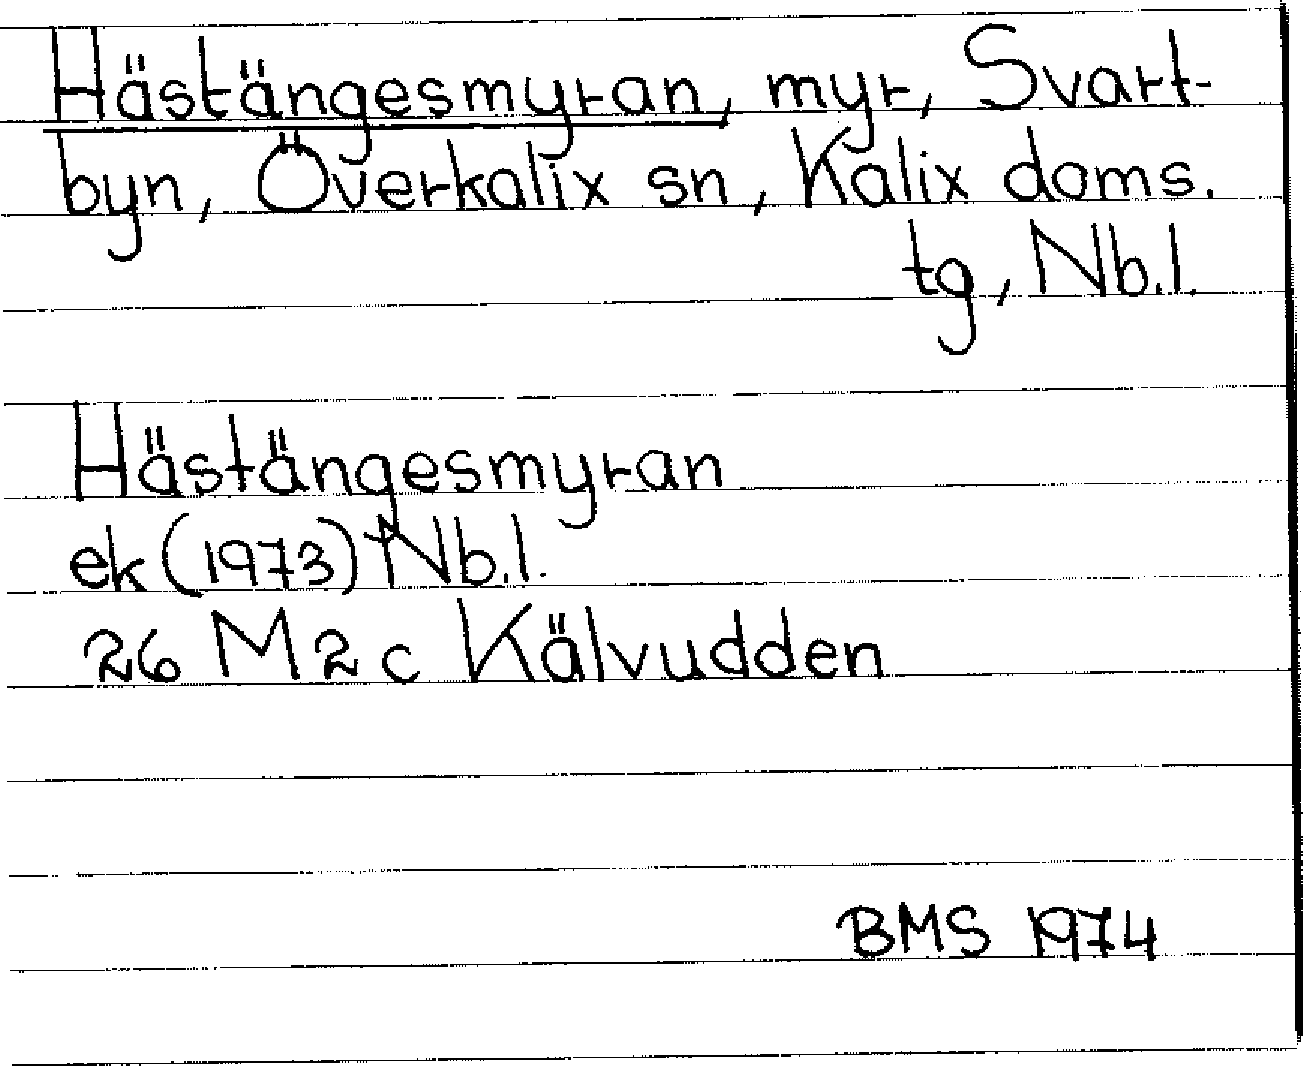 Hästängesmyran, myr, Svart-
byn, Överkalix sn, Kalix doms.
tg, Nb.l.
Hästängesmyran
ek (1973) Nb.l.
26 M 2 c Kälvudden
BMS 1974